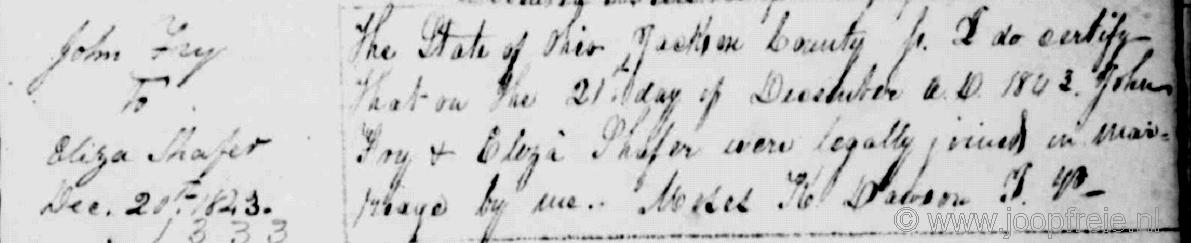 John Fry
To
Eliza Shafer
Dec. 20th 1843.
1333
The State of Ohio Jackson County ss. I do certify
that on the 21st day of December A.D. 1843. John
Fry & Eliza Shafer were legally joined in mar-
riage by me. Moses K Dawson J. P.
© www.joopfreje.nl